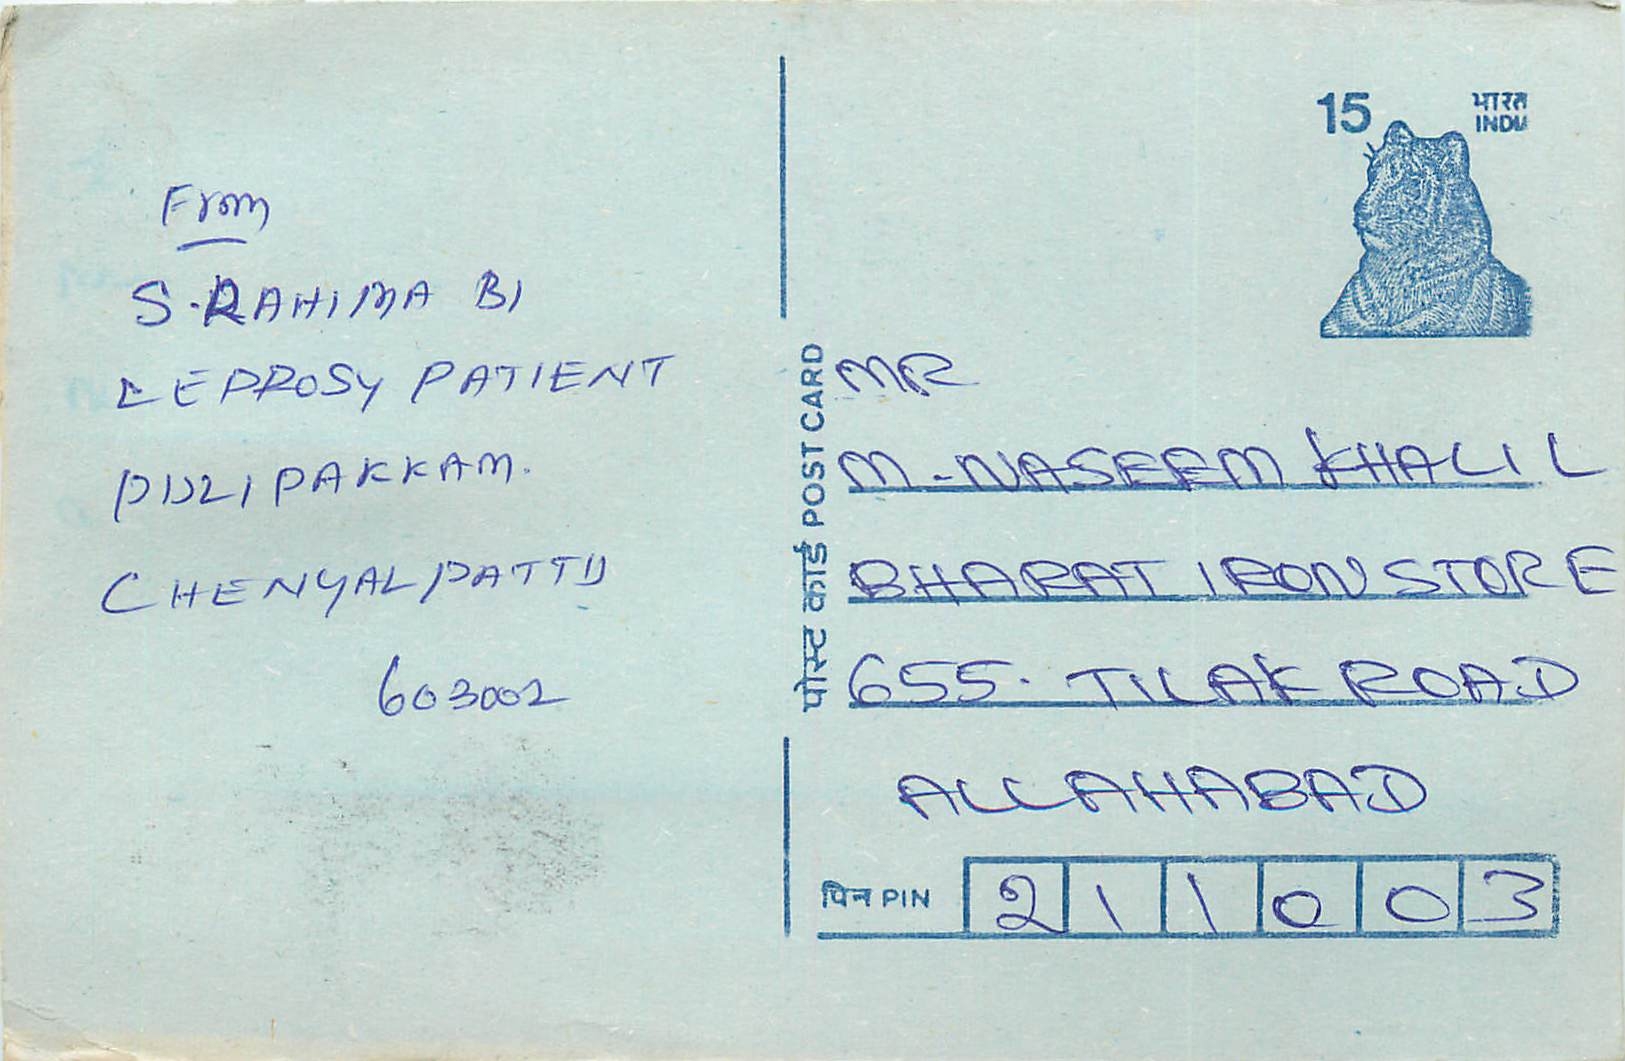 From
S. RAHIMA BI
LEPROSY PATIENT
PULIPAKKAM.
CHENYALPATTU
603002
पोस्ट कार्ड POST CARD
15
भारत
INDIA
MR
M. NASEEM KHALIL
BHARAT IRON STORE
655. TILAK ROAD
ALLAHABAD
पिन PIN 211003